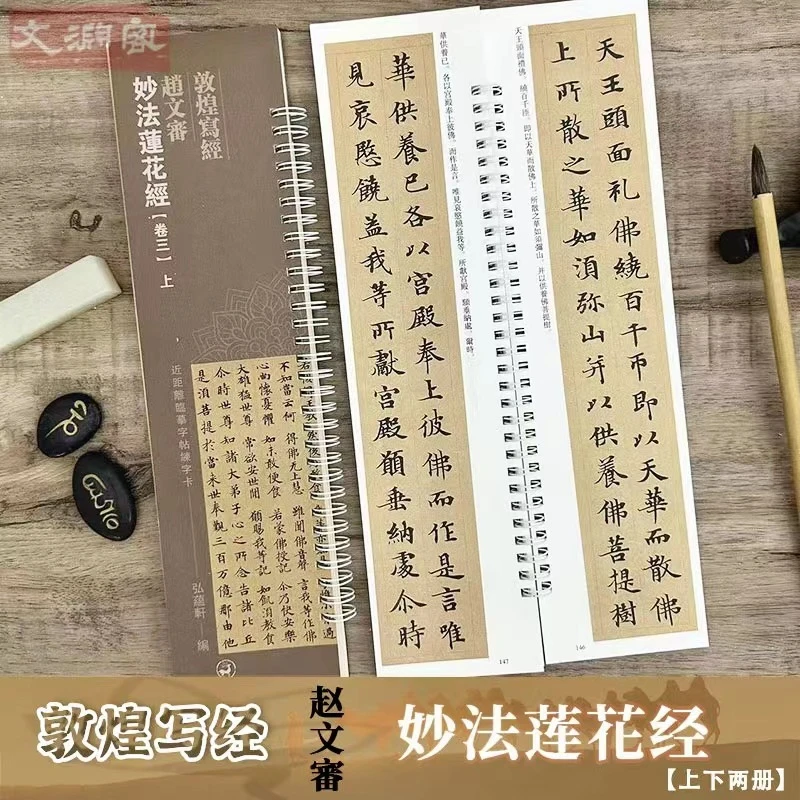 敦煌寫經
趙文審
妙法蓮花經【卷三】上
近距離臨摹字帖練字卡
弘蘊軒 編
不如當云何 得佛无上慧 雖聞佛音聲 言我等作佛
心尚懷憂懼 如未敢便食 若蒙佛授記 尒乃快安樂
大雄猛世尊 常欲安世間 願賜我等記 如飢須教食
尒時世尊知諸大弟子心之所念告諸比丘
是須菩提於當來世奉覲三百万億那由他
天王頭面禮佛，繞百千匝，即以天華而散佛上，所散之華如須彌山，并以供養佛菩提樹。
天王頭面礼佛繞百千帀即以天華而散佛
上所散之華如須弥山并以供養佛菩提樹
146
華供養已，各以宮殿奉上彼佛，而作是言，唯見哀愍饒益我等，所獻宮殿，願垂納處。爾時，
華供養已各以宮殿奉上彼佛而作是言唯
見哀愍饒益我等所獻宮殿願垂納處尒時
147
敦煌写经
赵文審
妙法莲花经
【上下两册】